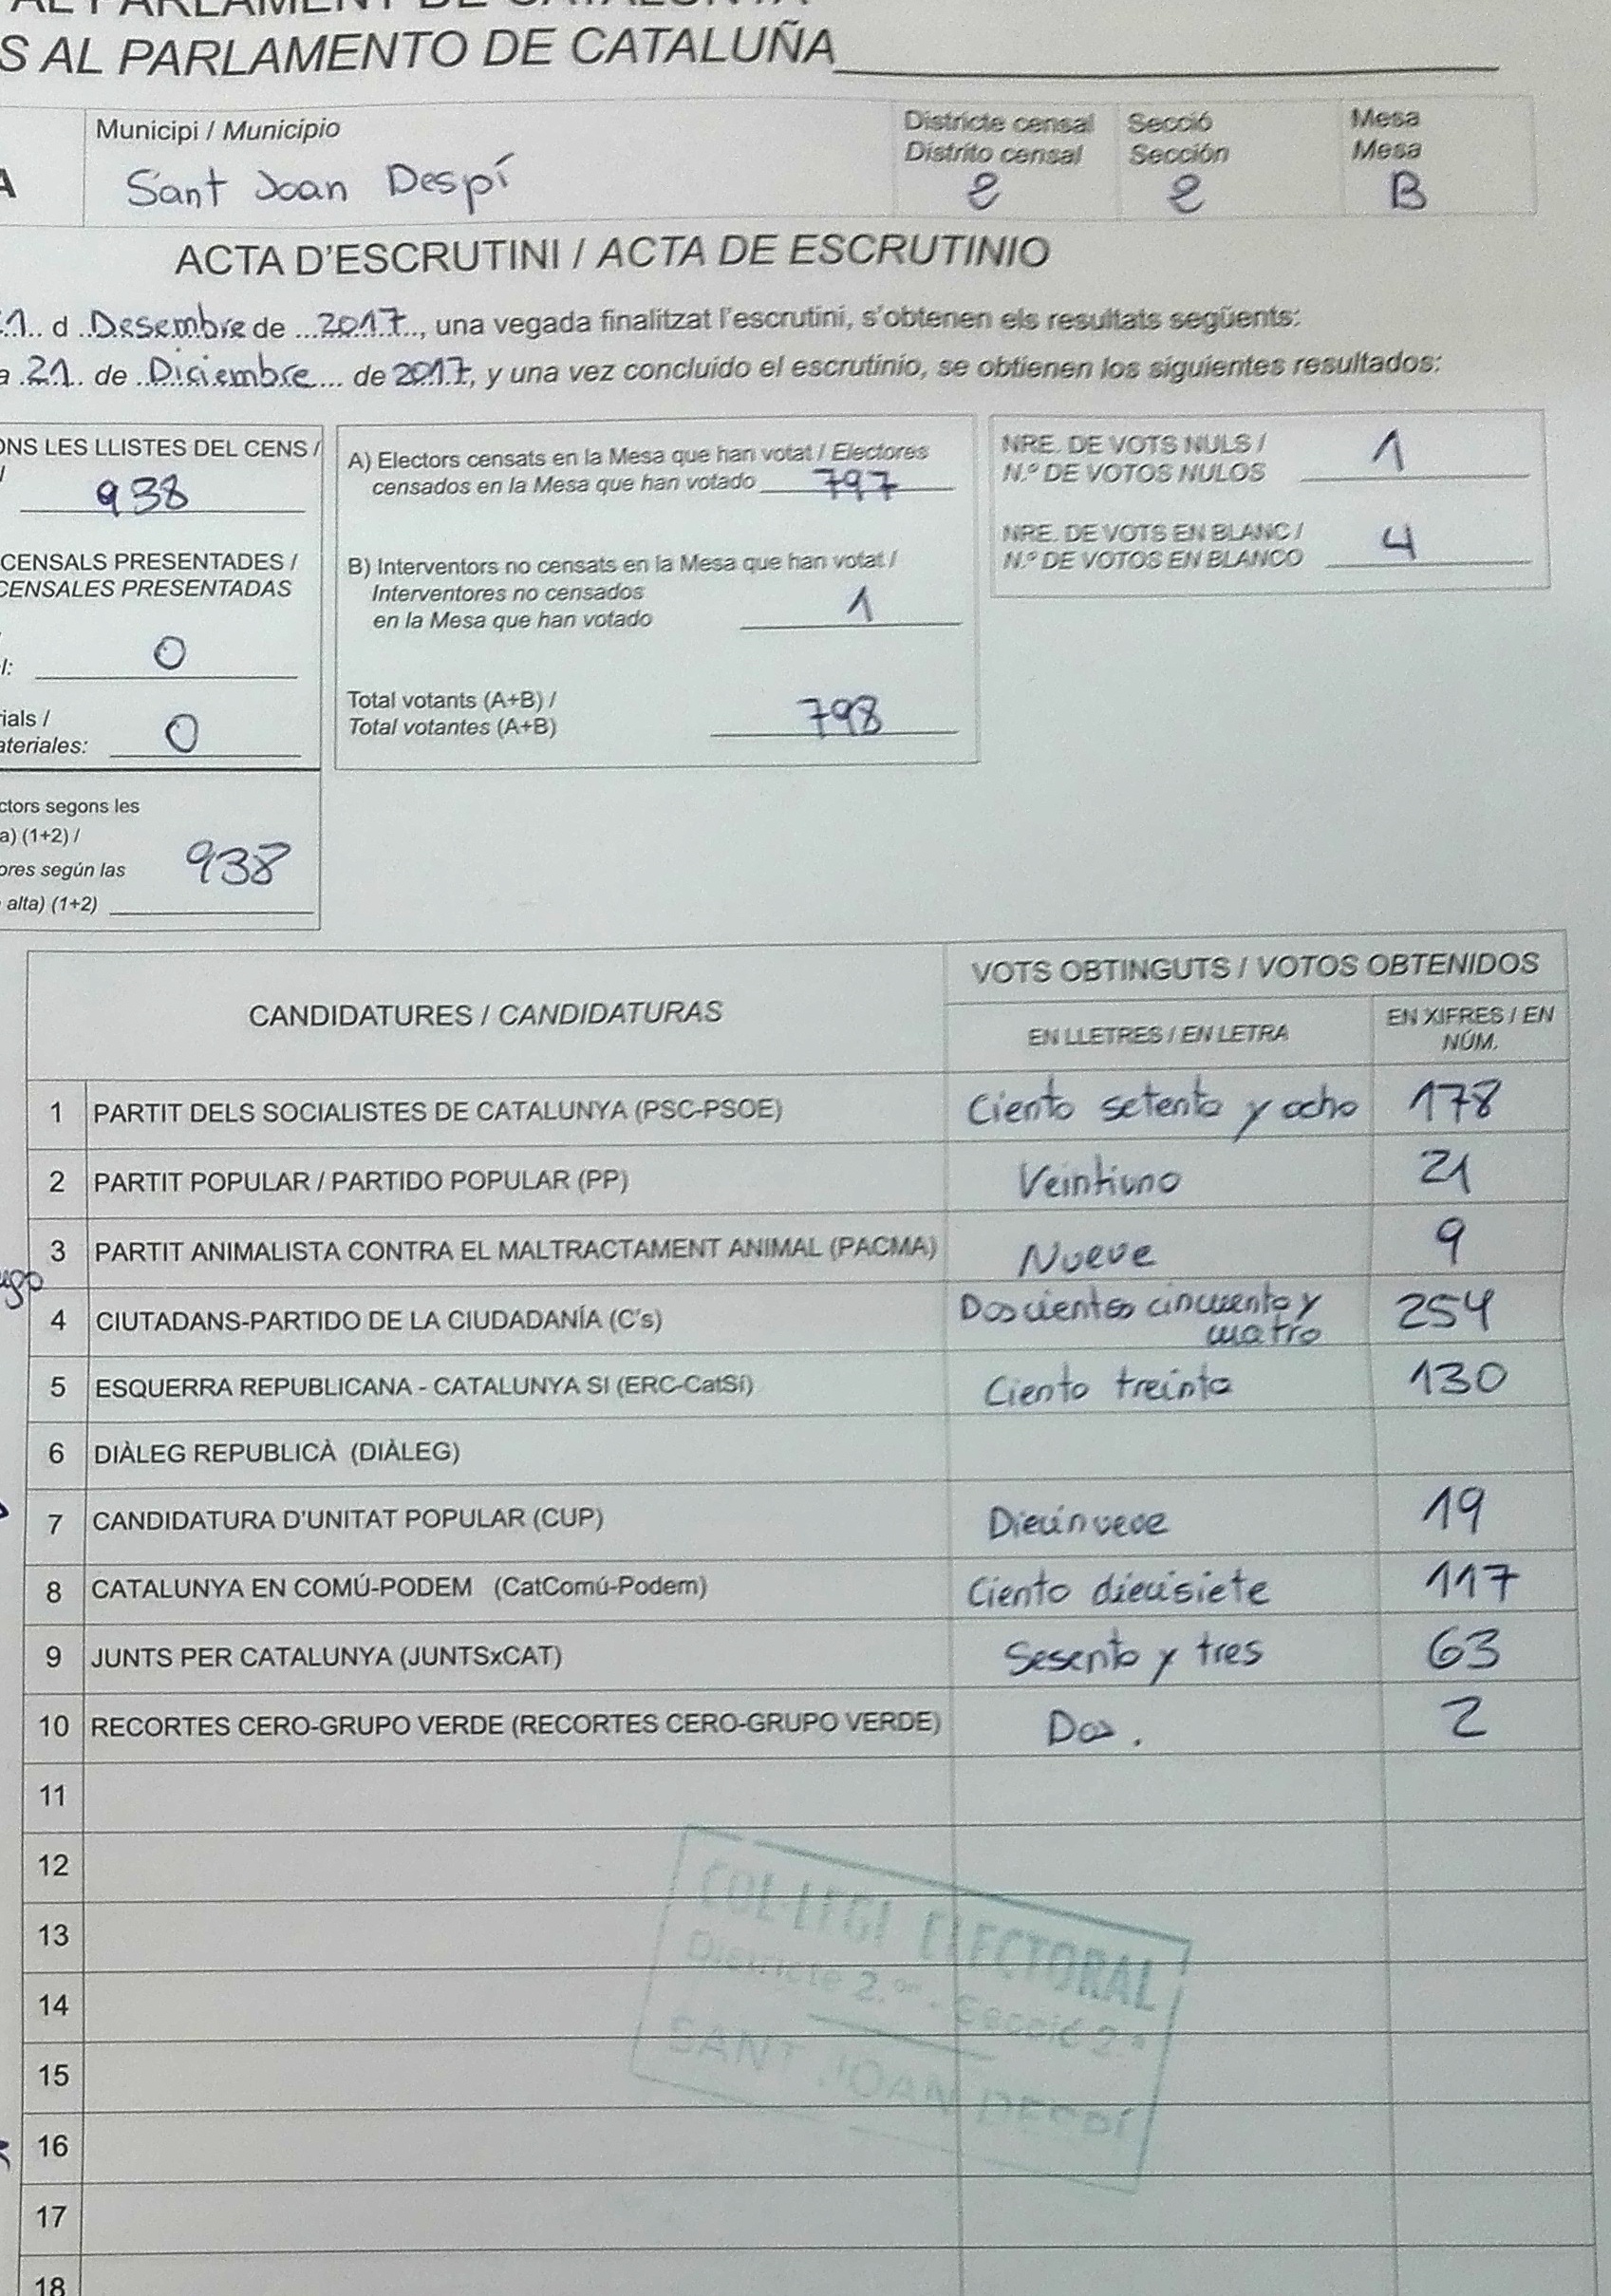 AL PARLAMENT DE CATALUNYA
S AL PARLAMENTO DE CATALUÑA
A
Municipi / Municipio
Sant Joan Despí
Districte censal
Distrito censal
2
Secció
Sección
2
Mesa
Mesa
B
ACTA D'ESCRUTINI / ACTA DE ESCRUTINIO
21 d Desembre de 2017, una vegada finalitzat l'escrutini, s'obtenen els resultats següents:
a 21 de Diciembre de 2017, y una vez concluido el escrutinio, se obtienen los siguientes resultados:
ONS LES LLISTES DEL CENS /
938
CENSALS PRESENTADES /
CENSALES PRESENTADAS
l: 0
rials /
ateriales: 0
ctors segons les
a) (1+2) /
ores según las
alta) (1+2) 938
A) Electors censats en la Mesa que han votat / Electores
censados en la Mesa que han votado 797
B) Interventors no censats en la Mesa que han votat /
Interventores no censados
en la Mesa que han votado 1
Total votants (A+B) /
Total votantes (A+B) 798
NRE. DE VOTS NULS /
N.º DE VOTOS NULOS 1
NRE. DE VOTS EN BLANC /
N.º DE VOTOS EN BLANCO 4
CANDIDATURES / CANDIDATURAS
VOTS OBTINGUTS / VOTOS OBTENIDOS
EN LLETRES / EN LETRA
EN XIFRES / EN
NÚM.
1 PARTIT DELS SOCIALISTES DE CATALUNYA (PSC-PSOE) Ciento setenta y ocho 178
2 PARTIT POPULAR / PARTIDO POPULAR (PP) Veintiuno 21
3 PARTIT ANIMALISTA CONTRA EL MALTRACTAMENT ANIMAL (PACMA) Nueve 9
4 CIUTADANS-PARTIDO DE LA CIUDADANÍA (C's) Doscientos cincuenta y
cuatro 254
5 ESQUERRA REPUBLICANA - CATALUNYA SI (ERC-CatSí) Ciento treinta 130
6 DIÀLEG REPUBLICÀ (DIÀLEG)
7 CANDIDATURA D'UNITAT POPULAR (CUP) Diecinueve 19
8 CATALUNYA EN COMÚ-PODEM (CatComú-Podem) Ciento diecisiete 117
9 JUNTS PER CATALUNYA (JUNTSxCAT) Sesenta y tres 63
10 RECORTES CERO-GRUPO VERDE (RECORTES CERO-GRUPO VERDE) Dos. 2
11
12
13
14
15
16
17
18
COL·LEGI ELECTORAL
Districte 2.on - Secció 2.a
SANT JOAN DESPÍ